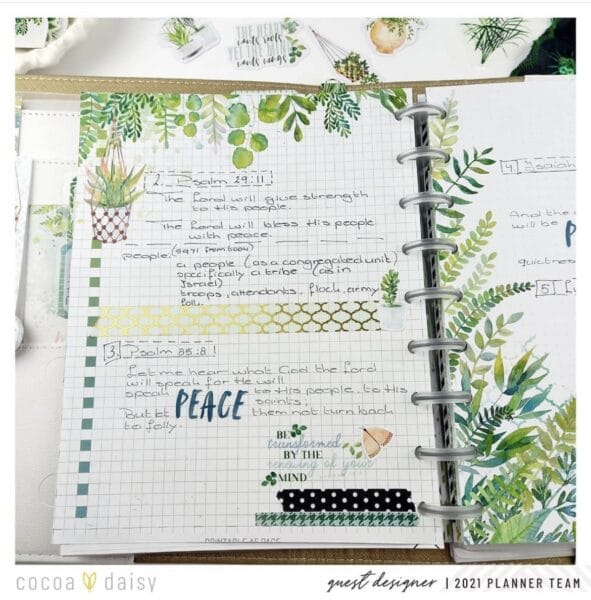 THE HEART
wants roots
YET THE MIND
wants wings
2. Psalm 29:11
The Lord will give strength
to His people.
The Lord will bless His people
with peace.
people:
a people (as a congregated unit)
specifically a tribe (as in
Israel)
troops, attendants, flock, army
folk.
3. Psalm 85:8
Let me hear what God the Lord
will speak for He will
speak PEACE to His people, to His
saints;
But let them not turn back
to folly.
BE
transformed
BY THE
renewing of your
MIND
4. Isaiah
And the
will be
quietness
5
cocoa daisy
guest designer | 2021 PLANNER TEAM